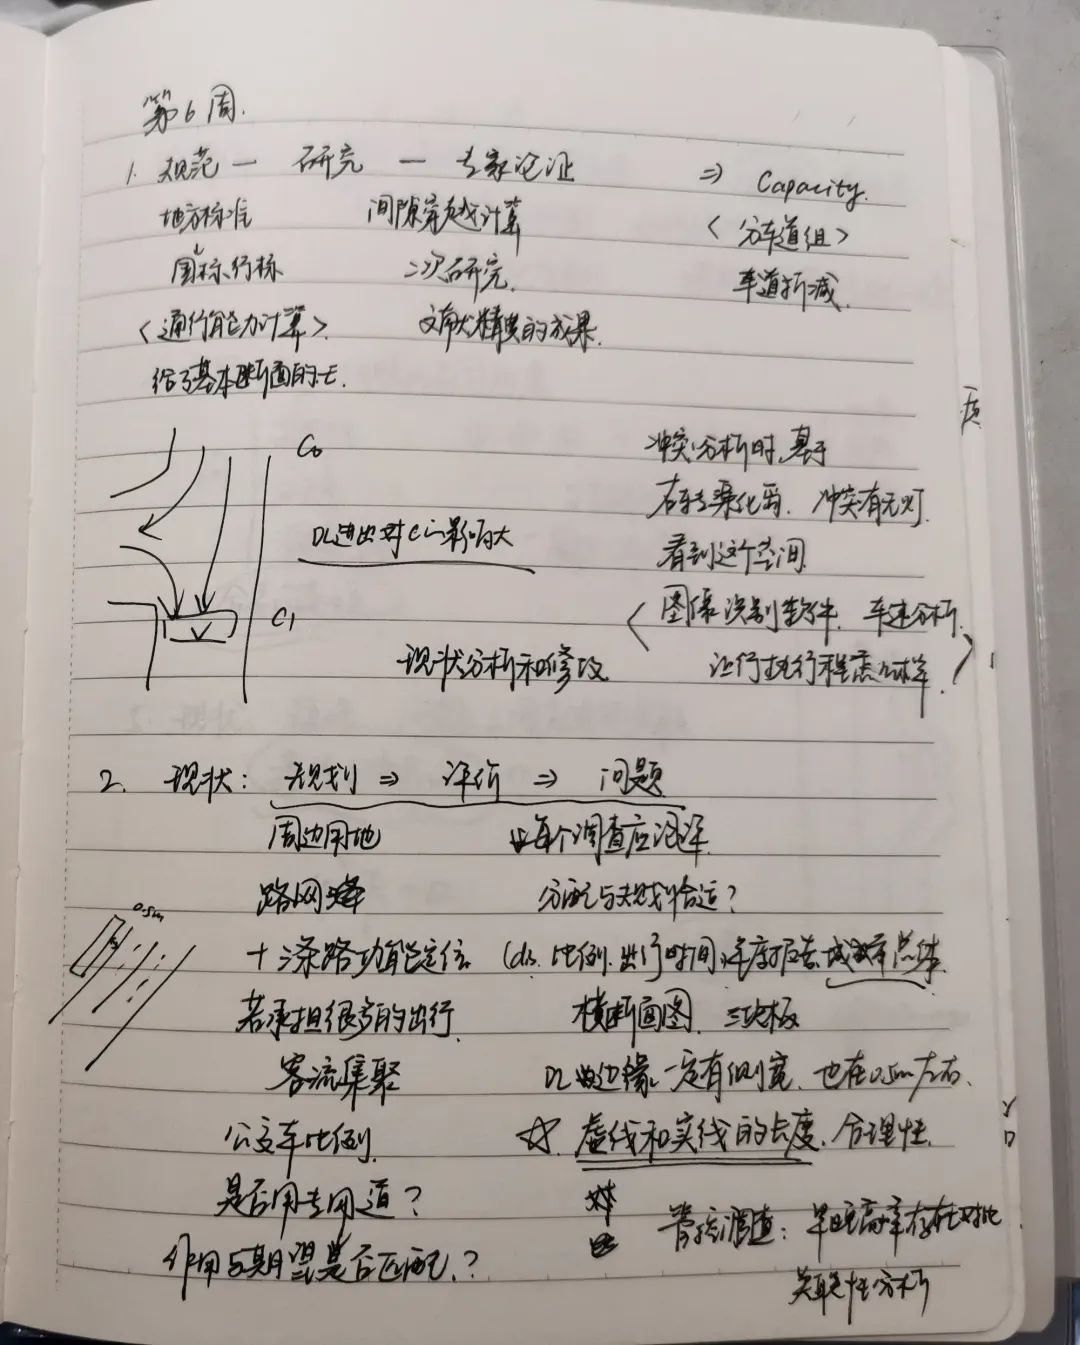 第6周.
1. 规范 — 研究 — 专家论证 ⇒ Capacity.
地方标准 间隙穿越计算 <分车道组>
↓
国标、行标 二次研究. 车道折减.
<通行能力计算> 文献精度的成果.
给了基本断面的
C₀ 冲突分析时,基于
右车专渠化岛. 冲突有无灯.
DL进出对C的影响大 看到这个空间
C₁ <图像识别软件. 车速分析.
现状分析和修改 让行执行程度 >
2. 现状: 规划 ⇒ 评价 ⇒ 问题
周边用地 每个调查应
路网 分配与规划合适?
0.5m
十三条路功能定位 (ds. 比例. 出行时间) 年度报告 总体
若承担很多的出行 横断面图、三块板
客流集聚 DL 边缘一定有侧宽、也在0.5m左右.
公交车比例. ☆. 虚线和实线的长度、合理性.
是否用专用道?
调查: 早晚高峰存在对比
作用与期望是否匹配.?
关联性分析